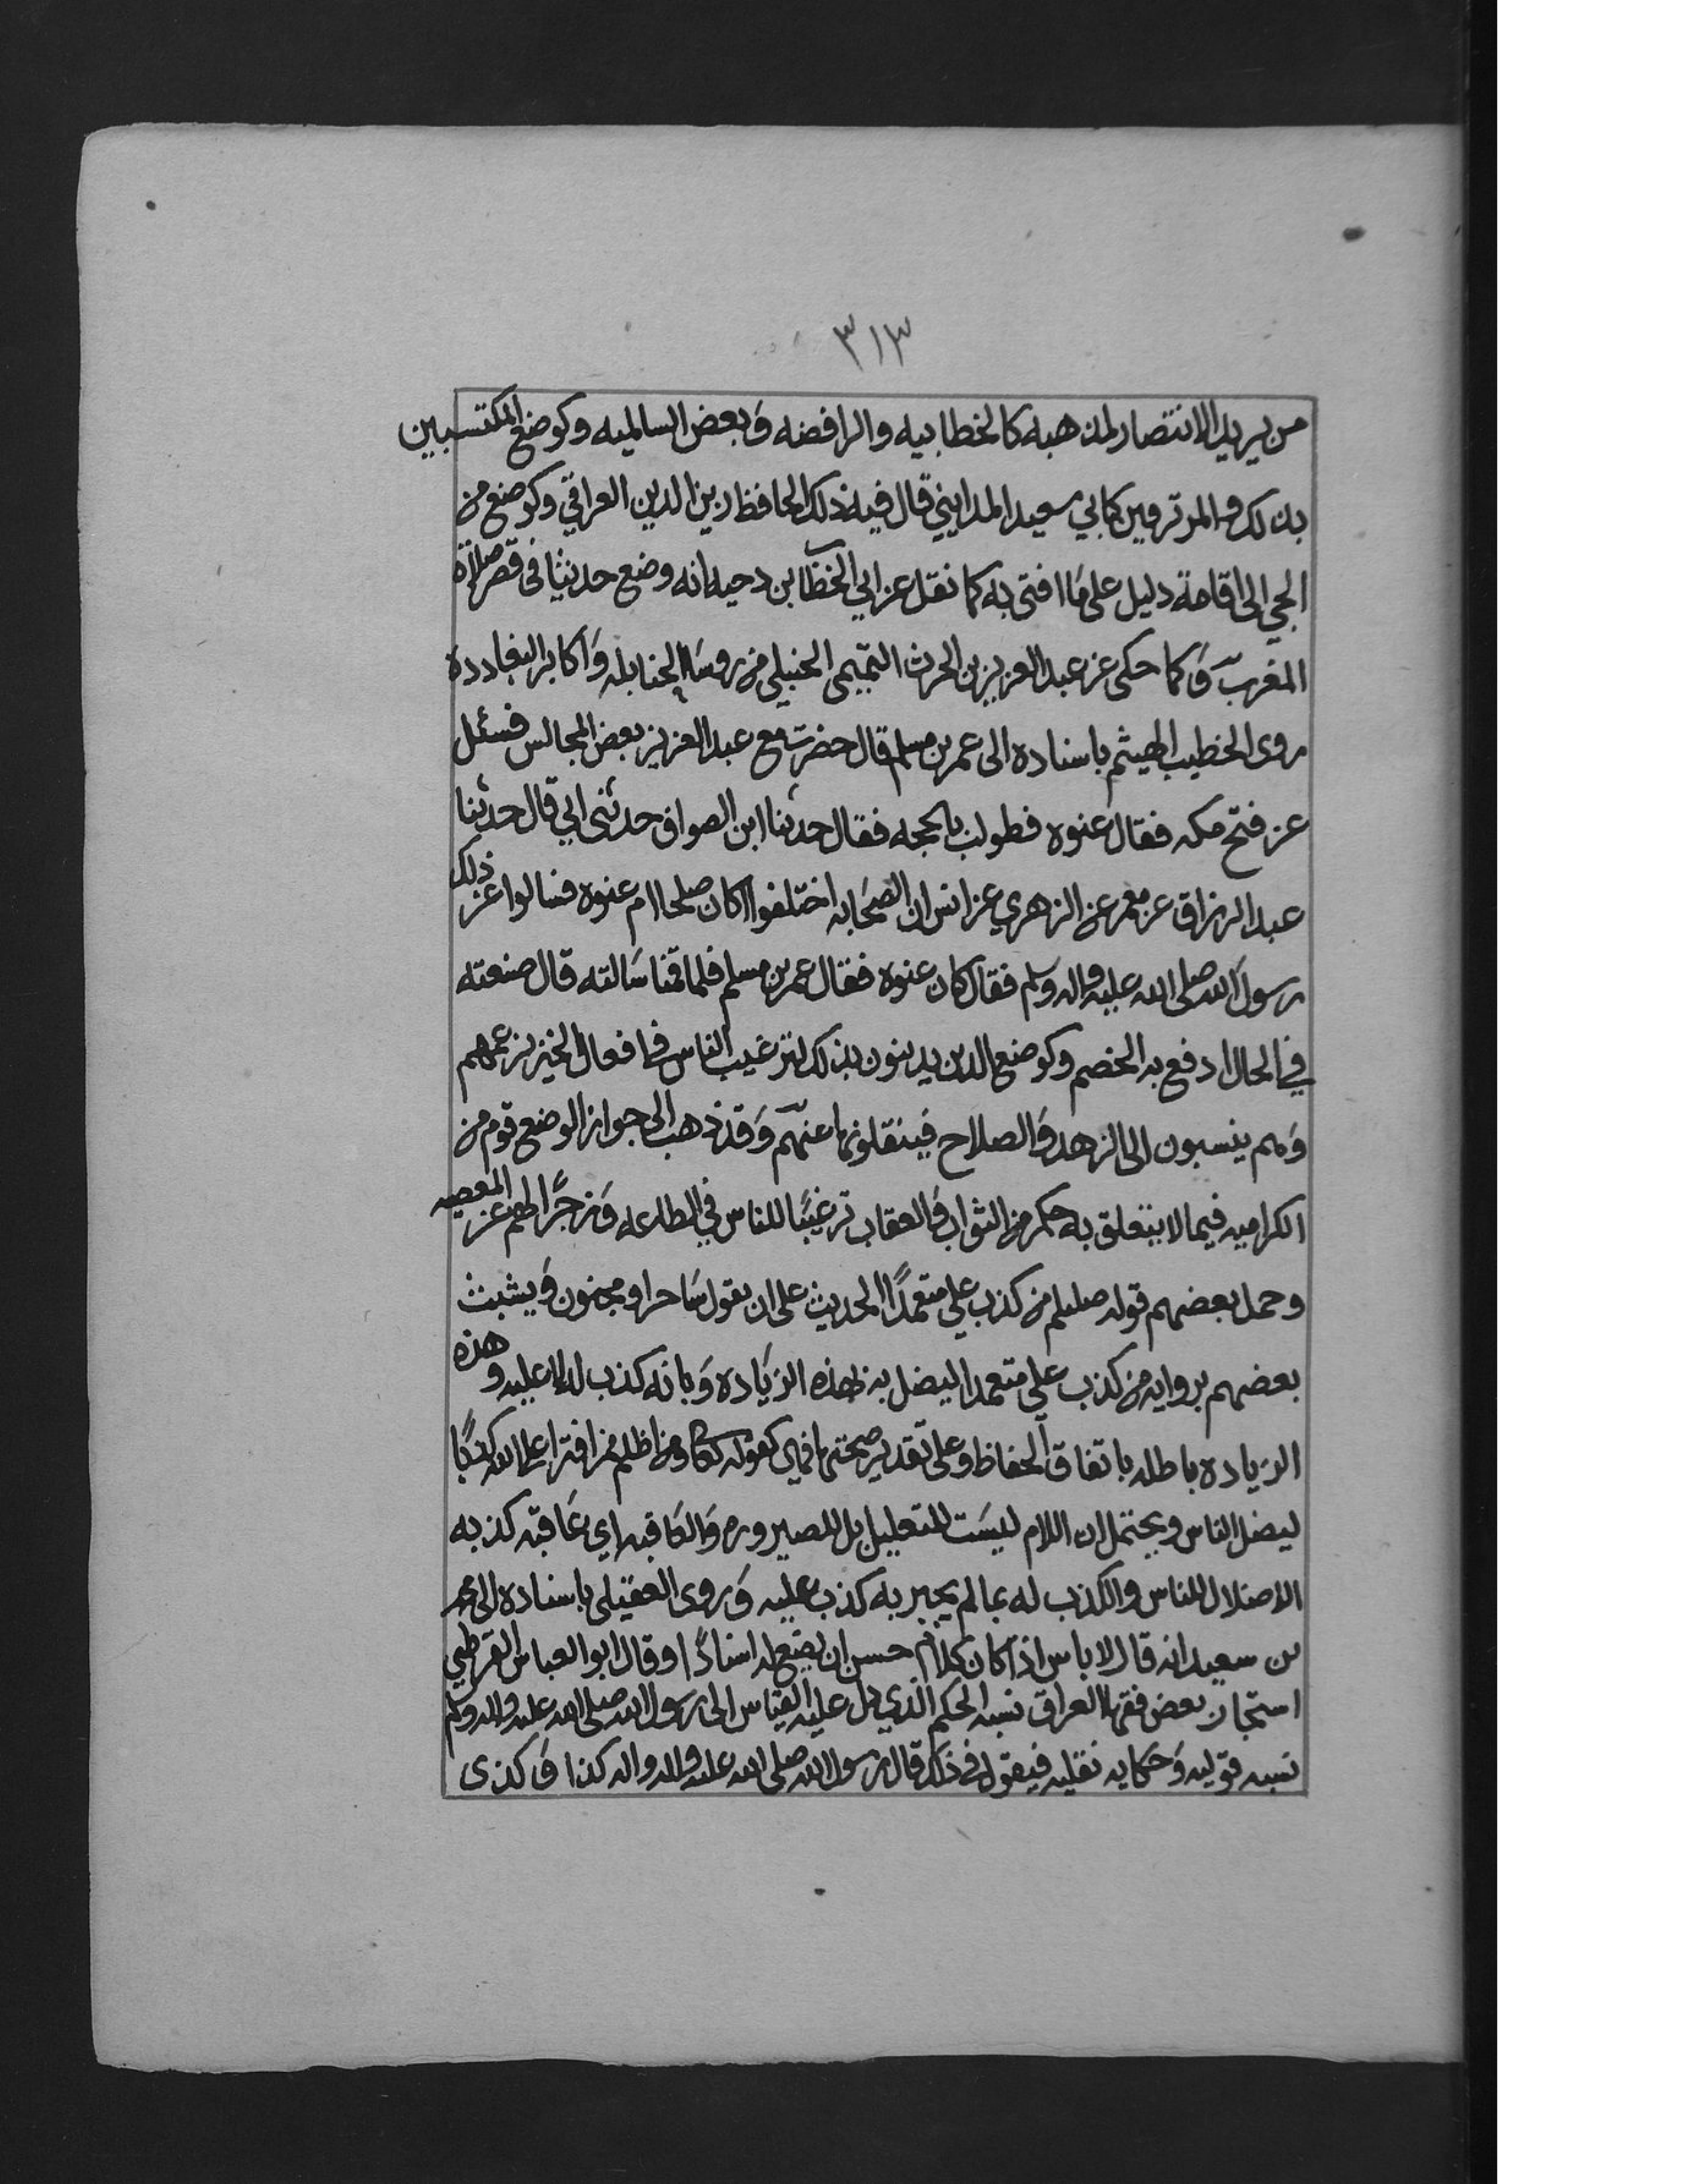 ٣١٣
من يريد الانتصار لمذهبه كالخطابيه والرافضه وبعض السالميه وكوضع المكتسبين
بذلك والمرتزقين كابي سعيد المدايني قال فيه ذلك الحافظ زين الدين العراقي وكوضع من
الجي الى اقامة دليل على ما افتى به كما نقل عن ابي الخطاب بن دحيه انه وضع حديثا في قصر صلاة
المغرب وكما حكى عن عبد العزيز بن الحرث التميمي الحنبلي من روسا الحنابله واكابر البغاددة
روى الخطيب الهيثم باسناده الى عمر بن مسلم قال حضرت مع عبد العزيز بعض المجالس فسئل
عن فتح مكه فقال عنوه فطولب بالحجه فقال حدثنا ابن الصواف حدثني ابي قال حدثنا
عبد الرزاق عن معمر عن الزهري عن انس ان الصحابه اختلفوا اكان صلحا ام عنوه فسالوا عن ذلك
رسول الله صلى الله عليه واله وسلم فقال كان عنوه فقال عمر بن مسلم فلما قمنا سالته قال صنعته
في الحال ادفع به الخصم وكوضع الدين يدينون بذلك لترغيب الناس في افعال الخير بزعمهم
وهم ينسبون الى الزهد والصلاح فينقلونها عنهم وقد ذهب الى جواز الوضع قوم من
الكراميه فيما لا يتعلق به حكم من الثواب والعقاب ترغيبًا للناس في الطاعه وزجرًا لهم عن المعصيه
وحمل بعضهم قوله صللم من كذب علي متعمدًا الحديث على ان يقول ساحر او مجنون ويشبث
بعضهم بروايه من كذب علي متعمدا ليضل به بهذه الزياده وبانه كذب له لا عليه وهذه
الزياده باطله باتفاق الحفاظ وعلى تقدير صحتها فهي كقوله تعالى ومن اظلم ممن افترا على الله كذبًا
ليضل الناس ويحتمل ان اللام ليست للتعليل بل للصيروره والعاقبه اي عاقبه كذبه
الاضلال للناس والكذب له بما لم يخبر به كذب عليه وروى العقيلي باسناده الى محمد
بن سعيد انه قال لا باس اذا كان كلام حسن ان يضع له اسنادًا وقال ابو العباس القرطبي
استجاز بعض فقها العراق نسبه الحكم الذي دل عليه القياس الى رسول الله صلى الله عليه واله وسلم
نسبه قوليه وحكايه نقليه فيقول في ذلك قال رسول الله صلى الله عليه واله كذا وكذى